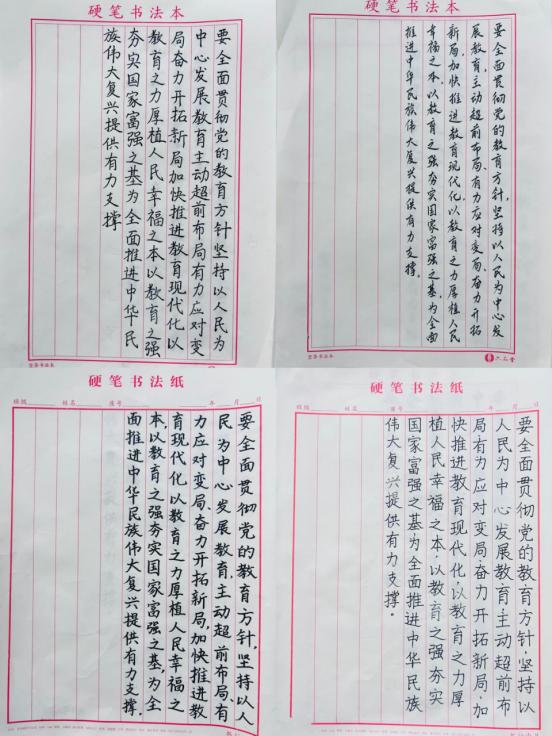 硬笔书法本
要全面贯彻党的教育方针坚持以人民为
中心发展教育主动超前布局有力应对变
局奋力开拓新局加快推进教育现代化以
教育之力厚植人民幸福之本以教育之强
夯实国家富强之基为全面推进中华民
族伟大复兴提供有力支撑
硬笔书法本
要全面贯彻党的教育方针，坚持以人民为中心发
展教育，主动超前布局、有力应对变局、奋力开拓
新局，加快推进教育现代化，以教育之力厚植人民
幸福之本，以教育之强夯实国家富强之基，为全面
推进中华民族伟大复兴提供有力支撑。
六品堂
硬笔书法纸
班级 姓名 座号 年 月 日
要全面贯彻党的教育方针，坚持以人
民为中心发展教育，主动超前布局、有
力应对变局、奋力开拓新局，加快推进教
育现代化，以教育之力厚植人民幸福之
本，以教育之强夯实国家富强之基，为全
面推进中华民族伟大复兴提供有力支撑。
硬笔书法纸
班级 姓名 座号 年 月 日
要全面贯彻党的教育方针，坚持以
人民为中心发展教育，主动超前布
局有为应对变局、奋力开拓新局，加
快推进教育现代化，以教育之力厚
植人民幸福之本，以教育之强夯实
国家富强之基为全面推进中华民族
伟大复兴提供有力支撑。